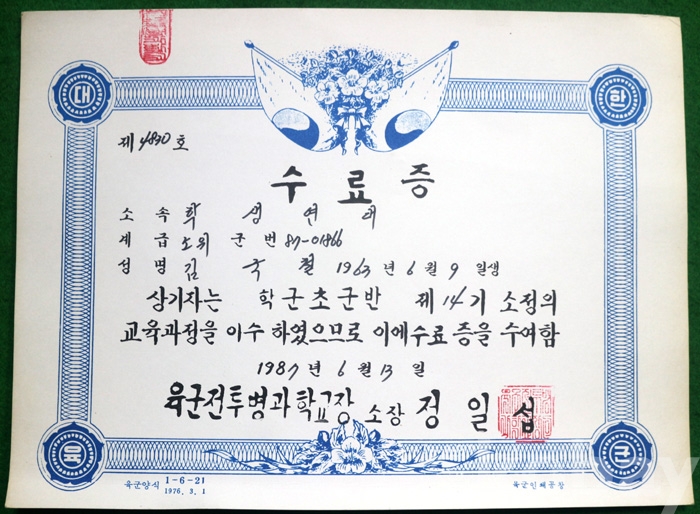 대 한
제 4830 호
수 료 증
소 속 학 생 연 대
계 급 소위 군 번 87-01866
성 명 김 국 철 1963 년 6 월 9 일생
상기자는 학군초군반 제 14 기 소정의
교육과정을 이수 하였으므로 이에 수료증을 수여함
1987 년 6 월 13 일
육군전투병과학교장 소장 정 일 섭
육 군
육군양식 1-6-21
1976. 3. 1
육군인쇄공창